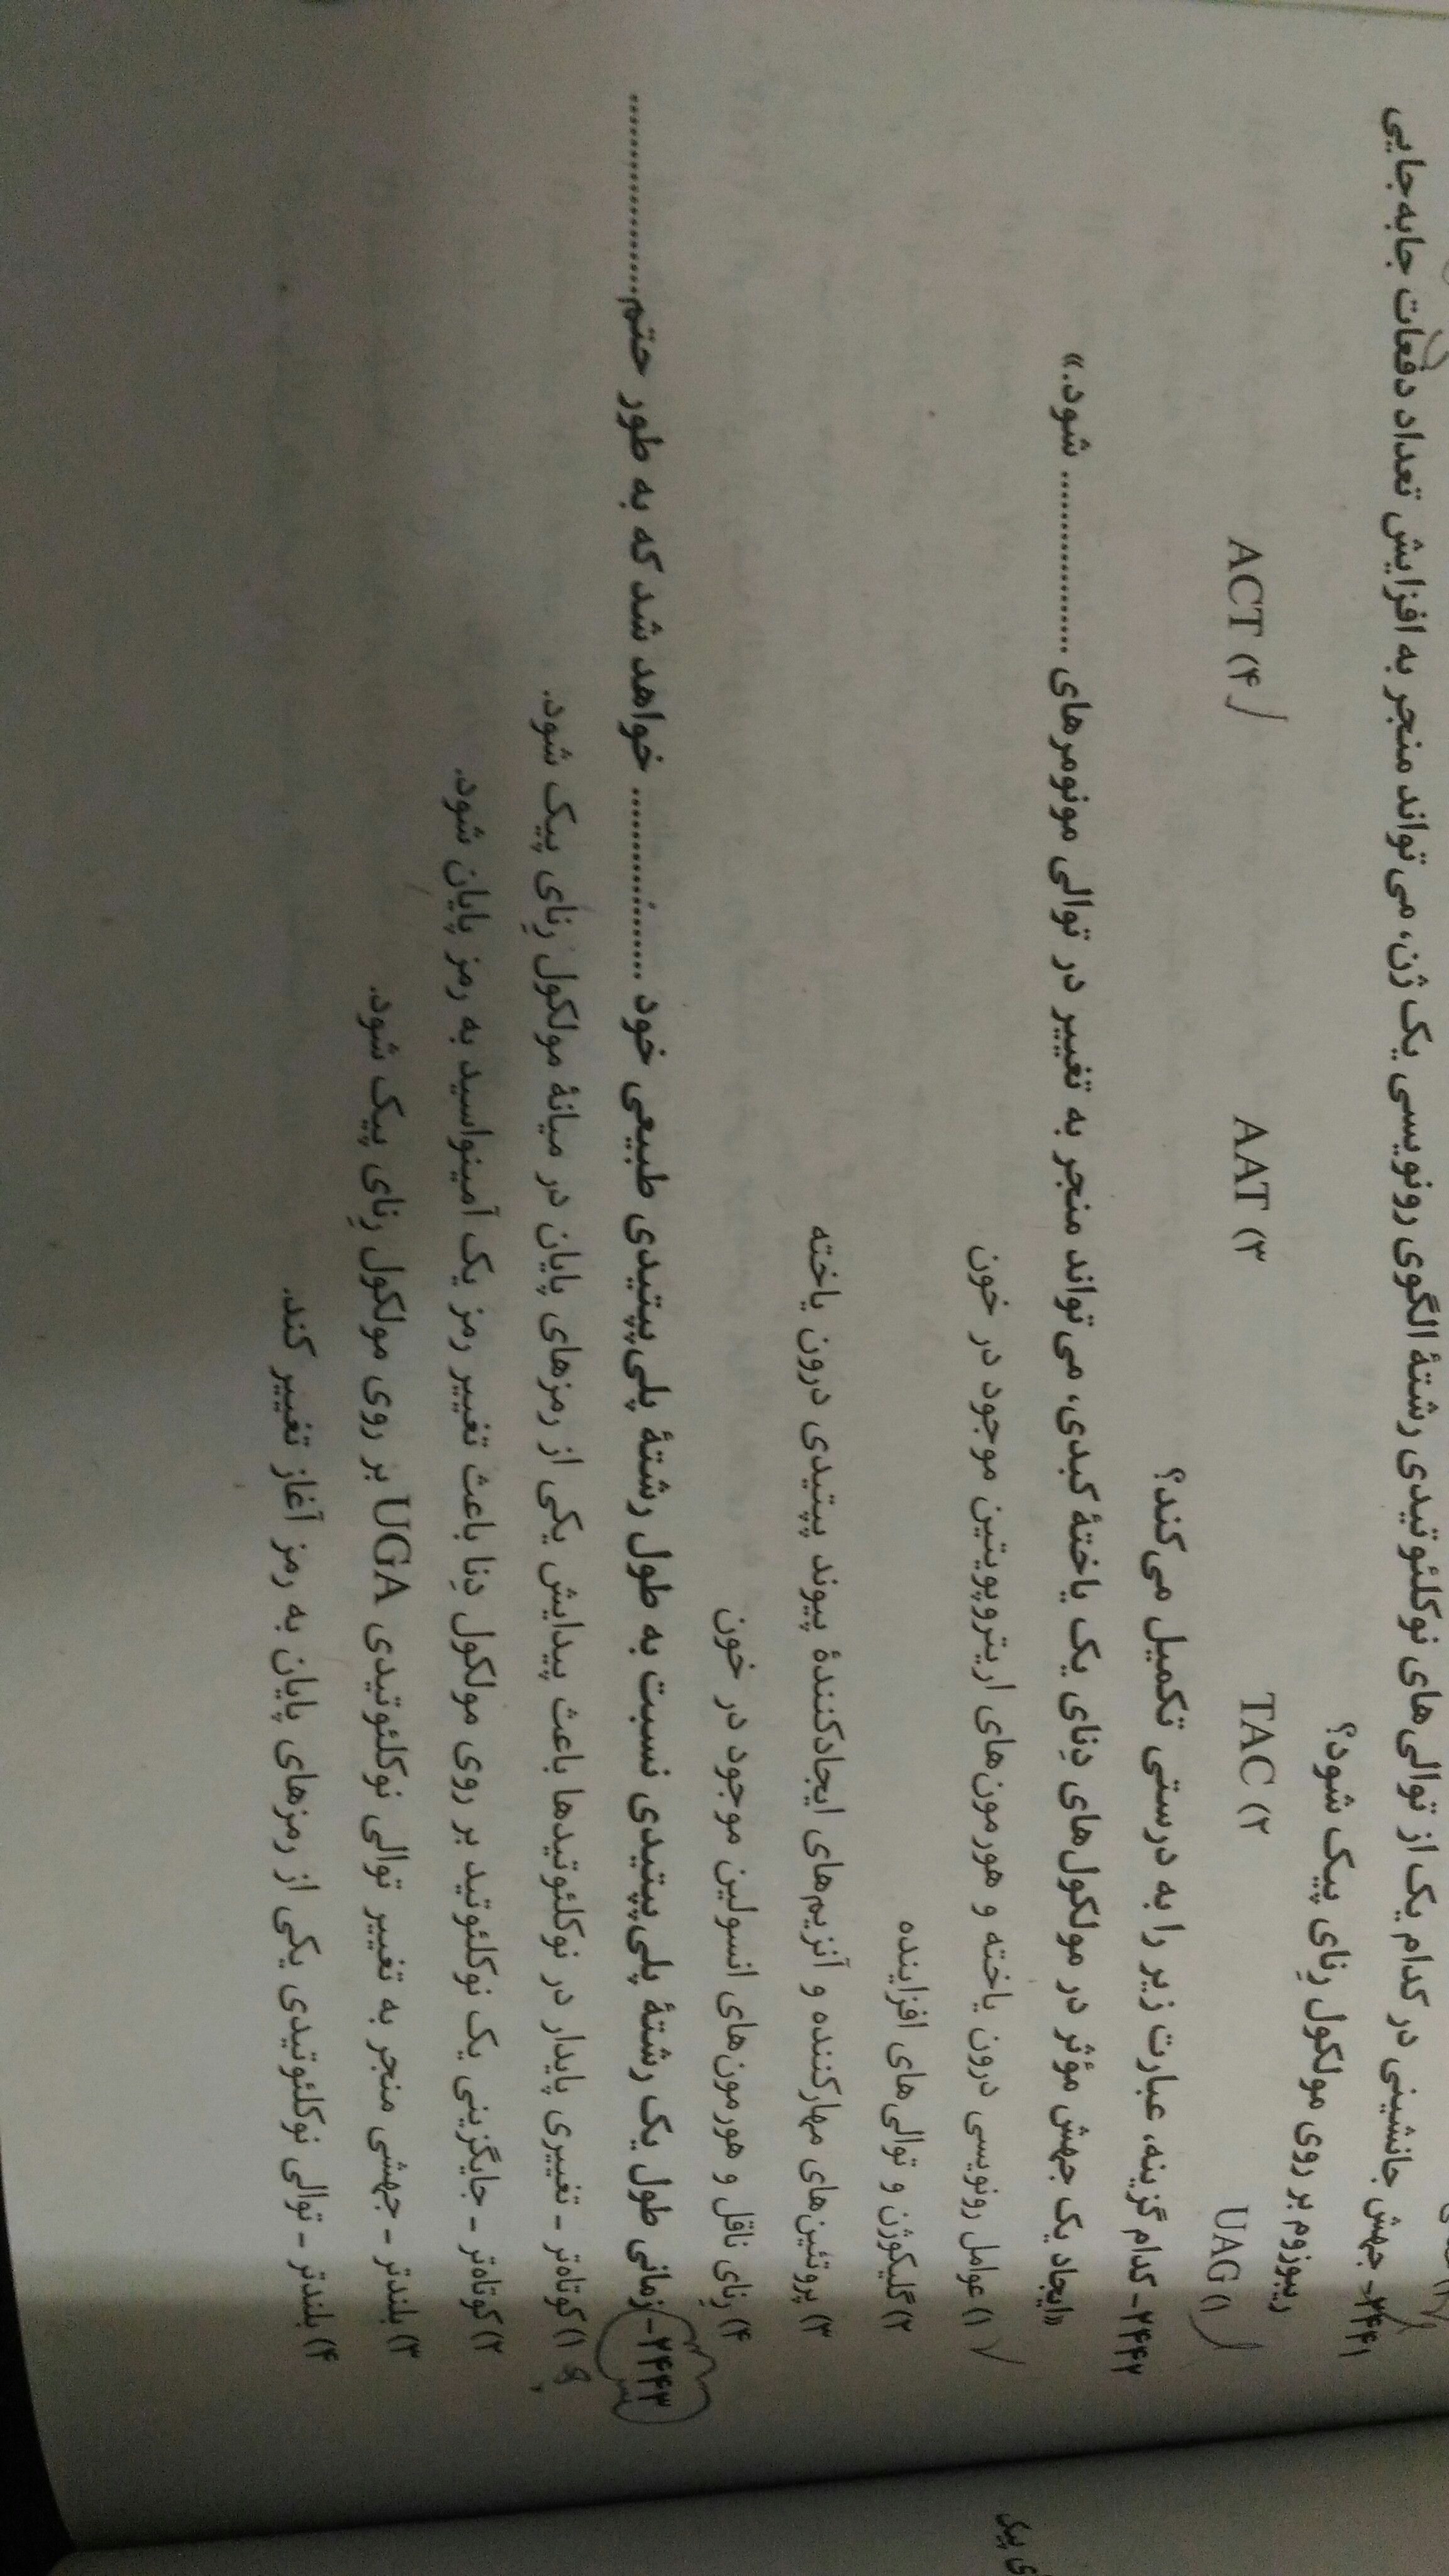 ۲۴۴۱- جهش جانشینی در کدام یک از توالی‌های نوکلئوتیدی رشتهٔ الگوی رونویسی یک ژن، می‌تواند منجر به افزایش تعداد دفعات جابه‌جایی
ریبوزوم بر روی مولکول رِنای پیک شود؟
۱) UAG ۲) TAC ۳) AAT ۴) ACT
۲۴۴۲- کدام گزینه، عبارت زیر را به درستی تکمیل می‌کند؟
«ایجاد یک جهش مؤثر در مولکول‌های دِنای یک یاختهٔ کبدی، می‌تواند منجر به تغییر در توالی مونومرهای ................ شود.»
۱) عوامل رونویسی درون یاخته و هورمون‌های اریتروپویتین موجود در خون
۲) گلیکوژن و توالی‌های افزاینده
۳) پروتئین‌های مهارکننده و آنزیم‌های ایجادکنندهٔ پیوند پپتیدی درون یاخته
۴) رِنای ناقل و هورمون‌های انسولین موجود در خون
۲۴۴۳- زمانی طول یک رشتهٔ پلی‌پپتیدی نسبت به طول رشتهٔ پلی‌پپتیدی طبیعی خود ................ خواهد شد که به طور حتم ................
۱) کوتاه‌تر - تغییری پایدار در نوکلئوتیدها باعث پیدایش یکی از رمزهای پایان در میانهٔ مولکول رِنای پیک شود.
۲) کوتاه‌تر - جایگزینی یک نوکلئوتید بر روی مولکول دِنا باعث تغییر رمز یک آمینواسید به رمز پایان شود.
۳) بلندتر - جهشی منجر به تغییر توالی نوکلئوتیدی UGA بر روی مولکول رِنای پیک شود.
۴) بلندتر - توالی نوکلئوتیدی یکی از رمزهای پایان به رمز آغاز تغییر کند.